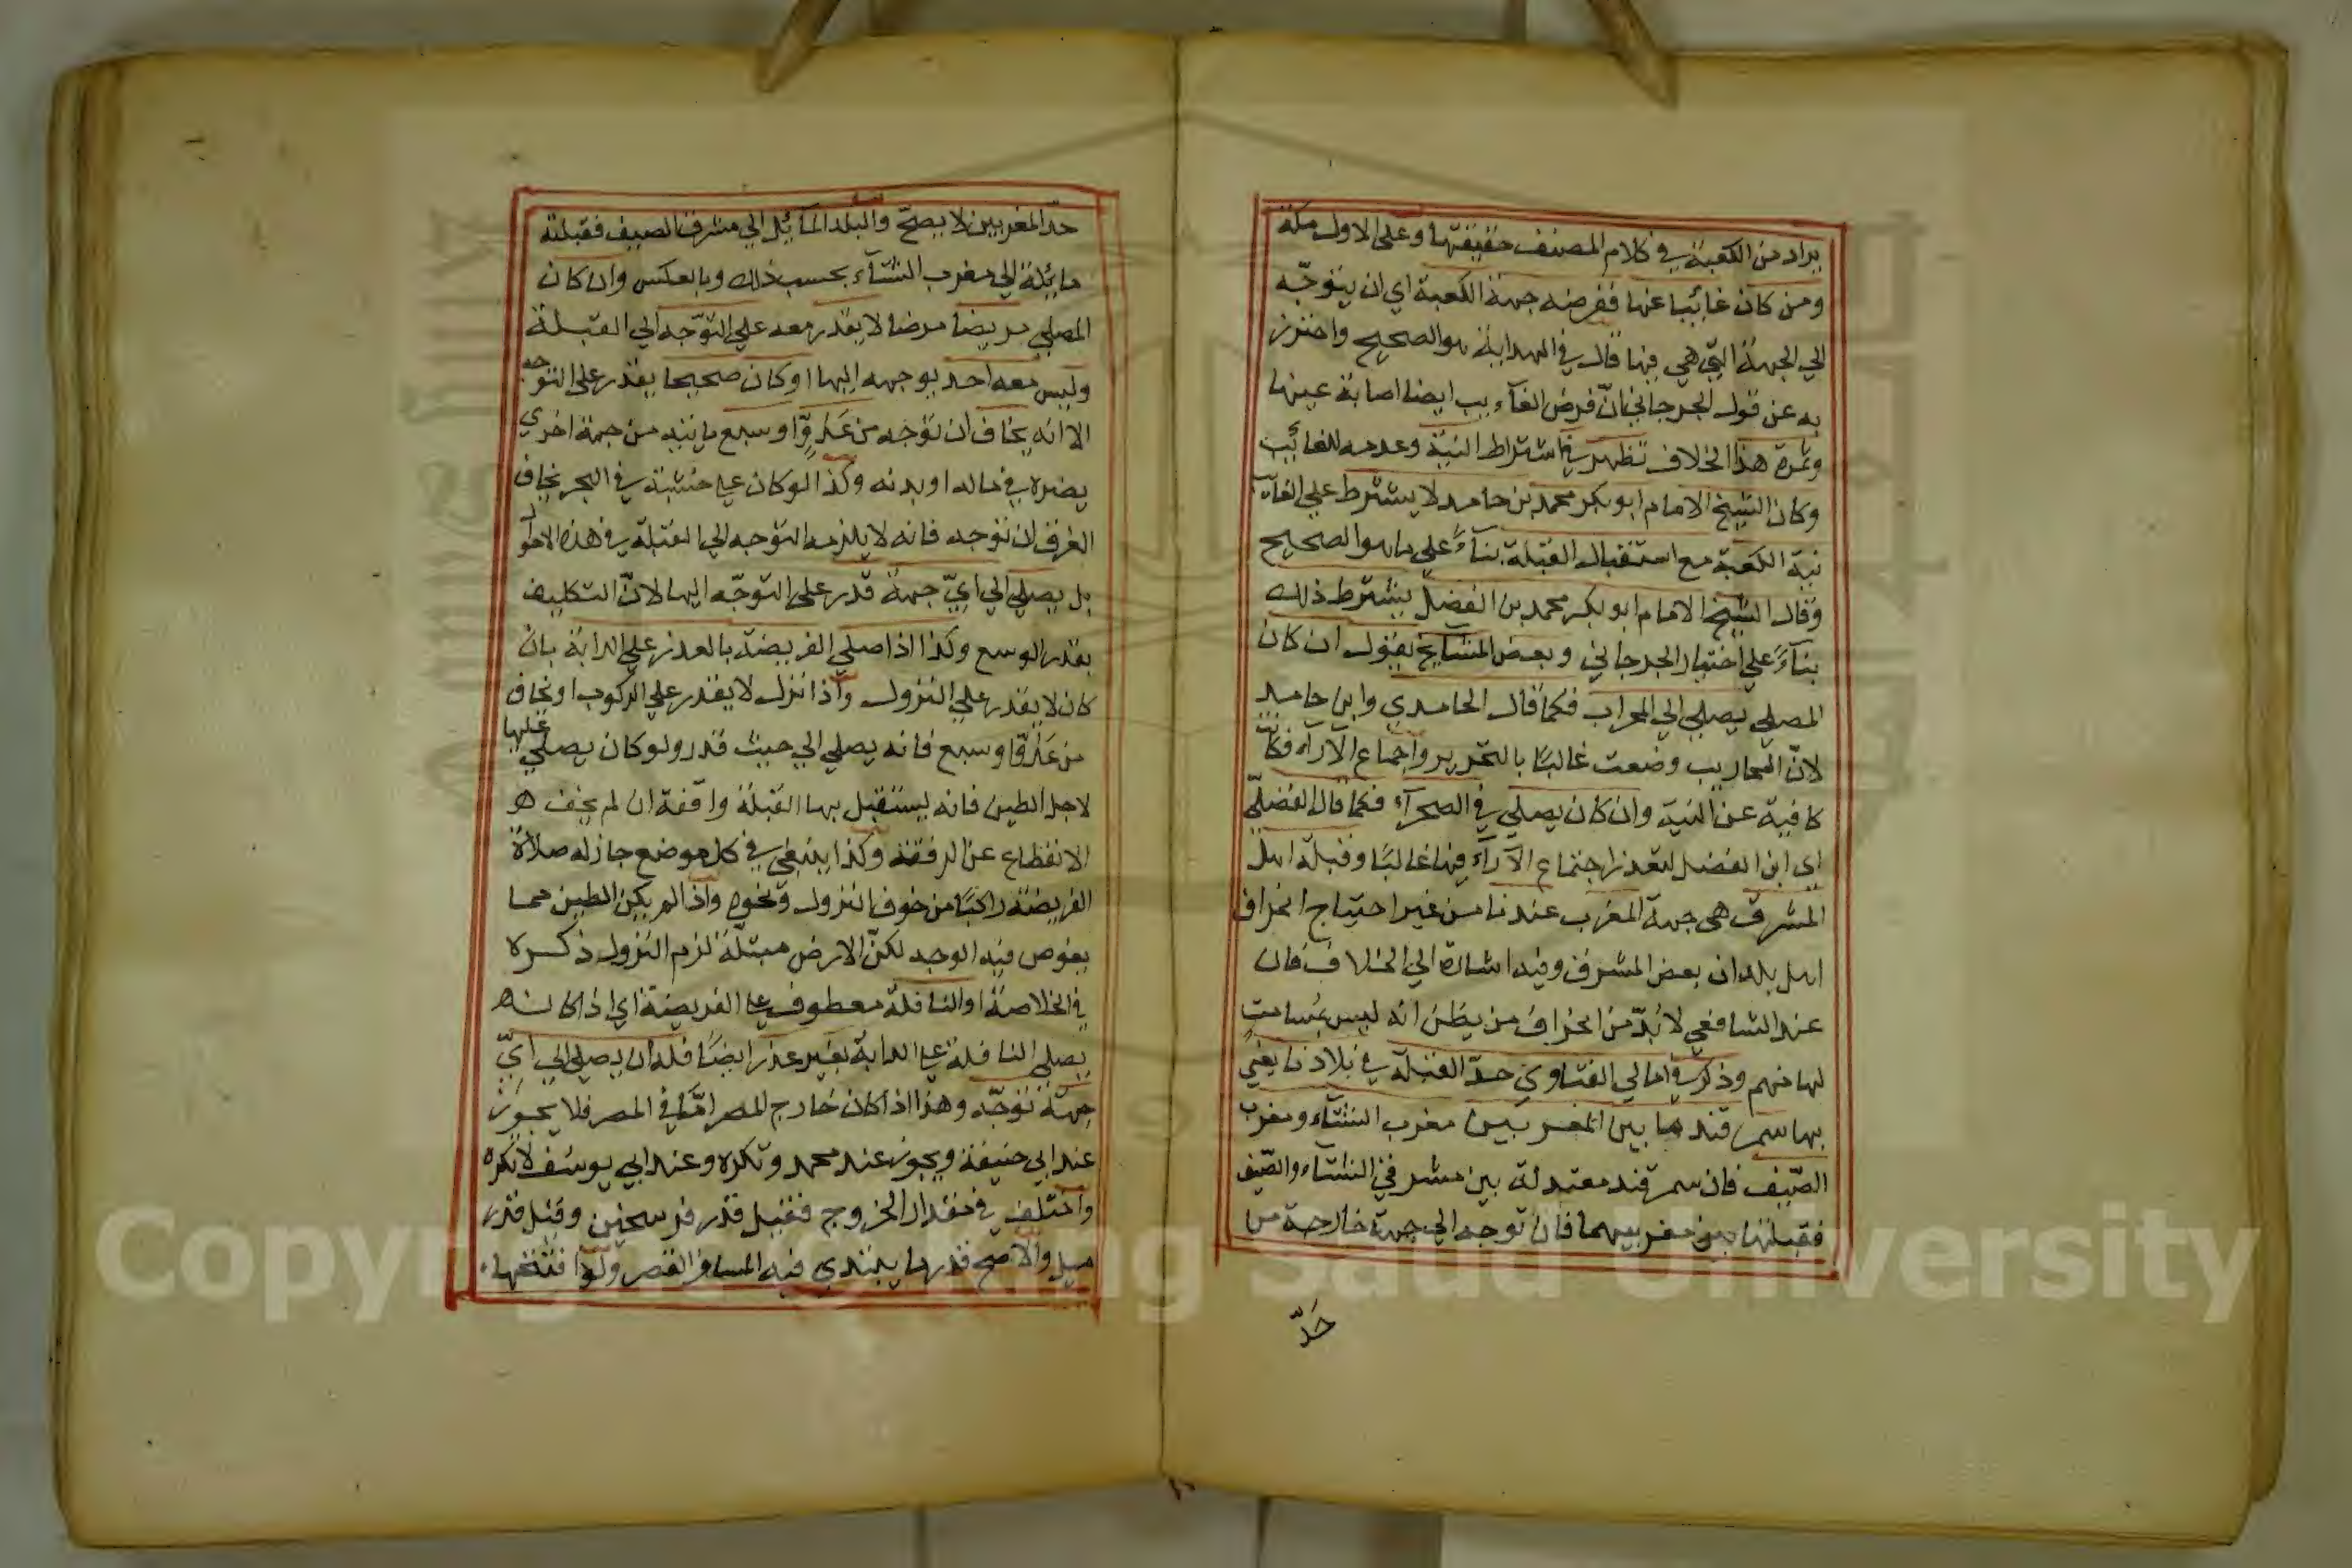 يراد من الكعبة في كلام المصنف حقيقتها وعلى الاول مكة
ومن كان غائبا عنها ففرضه جهة الكعبة اي ان يتوجّه
الي الجهة التي هي فيها قال في الهداية هو الصحيح واحترز
به عن قول الجرجاني انّ فرض الغآئب ايضا اصابة عينها
وثمرة هذا الخلاف تظهر في اشتراط النية وعدمه للغائب
وكان الشيخ الامام ابو بكر محمد بن حامد لا يشترط علي الغآئب
نية الكعبة مع استقبال القبلة بنآءً علي ما هو الصحيح
وقال الشيخ الامام ابو بكر محمد بن الفضل يشترط ذلك
بنآءً علي اختيار الجرجاني وبعض المشايخ يقول ان كان
المصلي يصلي الي المحراب فكما قال الحامدي وابن حامد
لانّ المحاريب وضعت غالبًا بالتحرير واجماع الآرآء فكانت
كافية عن النية وان كان يصلي في الصحرآء فكما قال الفضليّ
اي ابن الفضل لتعذر اجتماع الآرآء فيها غالبًا وقبلة اهل
المشرق هي جهة المغرب عندنا من غير احتياج انحراف
اهل بلدان بعض المشرق وفيه اشارة الي الخلاف فان
عند الشافعي لا بُدّ من انحراف من يظن انه ليس بمُسامتٍ
لها منهم وذكر في امالي الفتاوي حدّ القبلة في بلادنا يعني
بها سمرقند ما بين المغربين مغرب الشتآء ومغرب
الصّيف فان سمرقند معتدلة بين مشرقي الشتاء والصّيف
فقبلتها بين مغربيهما فان توجه الي جهة خارجة من
حَدّ
حدّ المغربين لا يصحّ والبلد المآئل الي مشرق الصيف فقبلته
مائلة الي مغرب الشتآء بحسب ذلك وبالعكس وان كان
المصلي مريضا مرضا لا يقدر معه علي التوّجه الي القبلة
وليس معه احد يوجهه اليها او كان صحيحا يقدر علي التوجه
الا انه يخاف ان توجه من عدوّ او سبع ياتيه من جهة اخري
يضره في ماله او بدنه وكذا لو كان علي خشبة في البحر يخاف
الغرق ان توجه فانه لا يلزمه التوجه الي القبلة في هذه الاحوال
بل يصلي الي ايّ جهة قدر علي التوجّه اليها لانّ التكليف
بقدر الوسع وكذا اذا صلي الفريضة بالعذر علي الدابة بان
كان لا يقدر علي النزول وإذا نزل لا يقدر علي الركوب او يخاف
من عدوّ او سبع فانه يصلي الي حيث قدر ولو كان يصلي عليها
لاجل الطين فانه يستقبل بها القبلة واقفة ان لم يخف هو
الانقطاع عن الرفقة وكذا ينبغي في كل موضع جاز له صلاة
الفريضة راكبًا من خوف النزول ونحوه واذا لم يكن الطين مما
يغوص فيه الوجه لكنّ الارض مبتلّة لزم النزول ذكره
في الخلاصة او النافلة معطوف علي الفريضة اي اذا كانه
يصلي النافلة علي الدابة بغير عذر ايضًا فله ان يصلي الي ايّ
جهة توجّه وهذا اذا كان خارج المصر امّا في المصر فلا يجوز
عند ابي حنيفة ويجوز عند محمد وتكره وعند ابي يوسف لا تكره
واختلف في مقدار الخروج فقيل قدر فرسخين وقيل قدر
ميل والاصح قدر ما يبتدي فيه المسافر القصر ولوا فتتحها